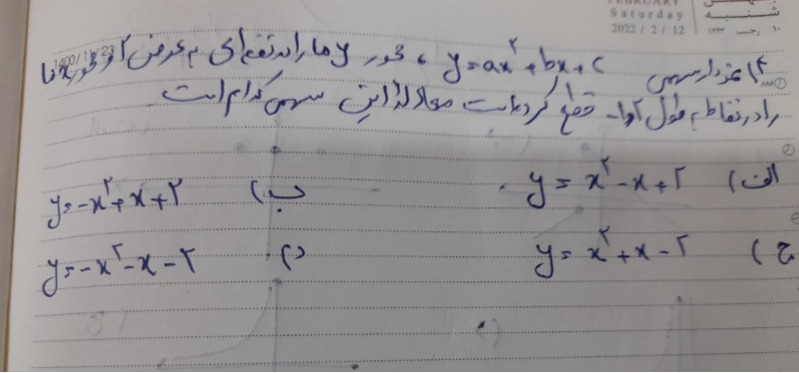 FEBRUARY
Saturday
2022 / 2 / 12
شنبه
۱۰ رجب ۱۴۴۳
1400/11/23
۱۴) نمودار سهمی y=ax²+bx+c ، محور yها را در نقطه‌ای به عرض ۲ و محور xها
را در نقاط به طول ۲ و ۱- قطع کرده است معادله این سهمی کدام است
الف) y = x²-x+۲ ب) y=-x²+x+۲
ج) y = x²+x-۲ د) y=-x²-x-۲